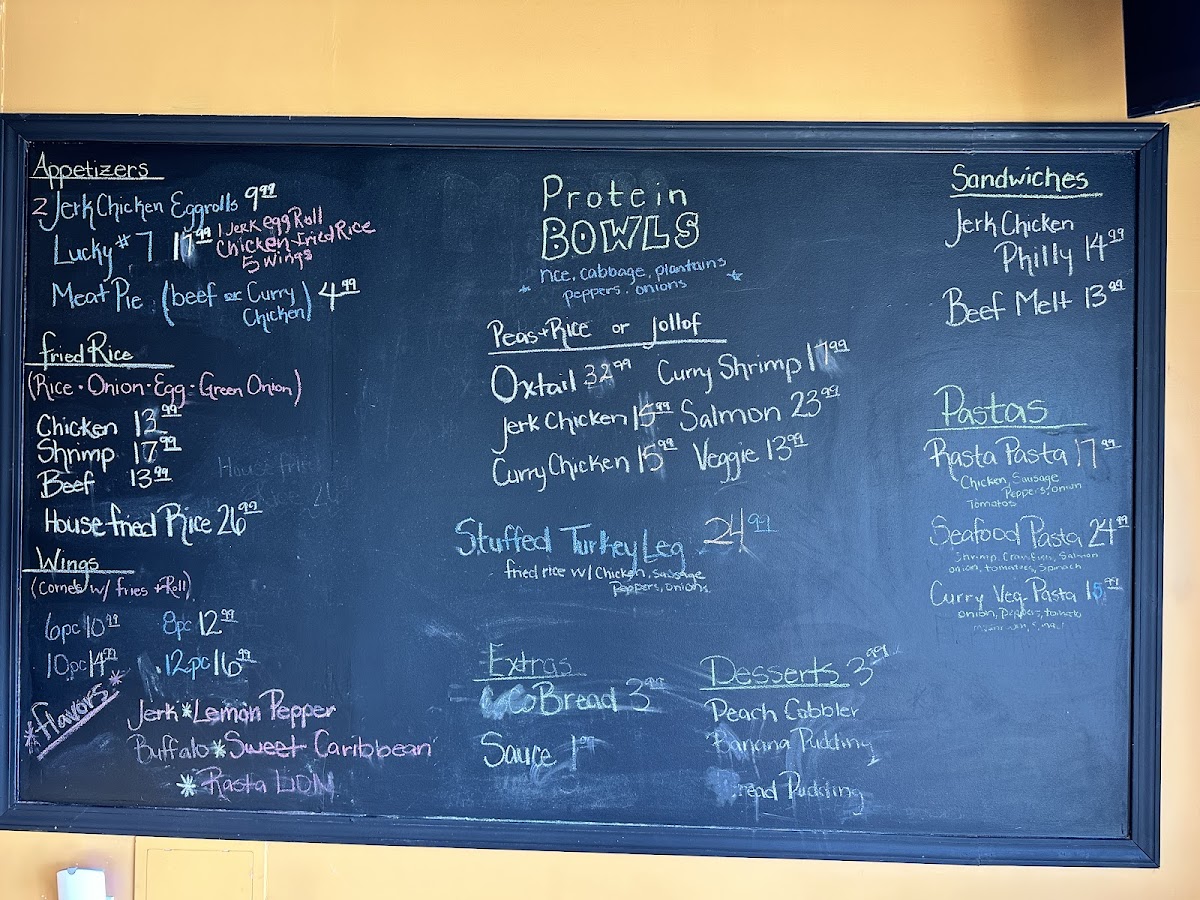 Appetizers
2 Jerk Chicken Eggrolls 9.99
Lucky #7 17.99
1 Jerk egg Roll
Chicken Fried Rice
5 wings
Meat Pie (beef or Curry Chicken) 4.99
fried Rice
(Rice · Onion · Egg · Green Onion)
Chicken 13.99
Shrimp 17.99
Beef 13.99
House fried Rice 26.99
Wings
(Comes w/ fries + Roll)
6pc 10.99 8pc 12.99
10pc 14.99 12pc 16.99
*flavors*
Jerk * Lemon Pepper
Buffalo * Sweet Caribbean
* Rasta LION
Protein
BOWLS
* rice, cabbage, plantains *
peppers, onions
Peas + Rice or Jollof
Oxtail 32.99 Curry Shrimp 17.99
Jerk Chicken 15.99 Salmon 23.99
Curry Chicken 15.99 Veggie 13.99
Stuffed Turkey Leg 24.99
fried rice w/ Chicken, sausage
peppers, onions
Extras
CoCo Bread 3.99
Sauce 1.99
Desserts 3.99
Peach Cobbler
Banana Pudding
Bread Pudding
Sandwiches
Jerk Chicken
Philly 14.99
Beef Melt 13.99
Pastas
Rasta Pasta 17.99
Chicken, Sausage
Peppers, onion
Tomatos
Seafood Pasta 24.99
Shrimp, Crawfish, Salmon
onion, tomatoes, Spinach
Curry Veg-Pasta 15.99
onion, Peppers, tomato